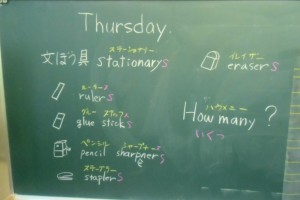 Thursday.
ステーショナリー
文ぼう具 stationarys
イレイザー
erasers
ルーラー
rulers
グルー スティック
glue sticks
ペンシル シャープナー
pencil sharpners
e
ステープラー
staplers
ハウメニー
How many ?
いくつ